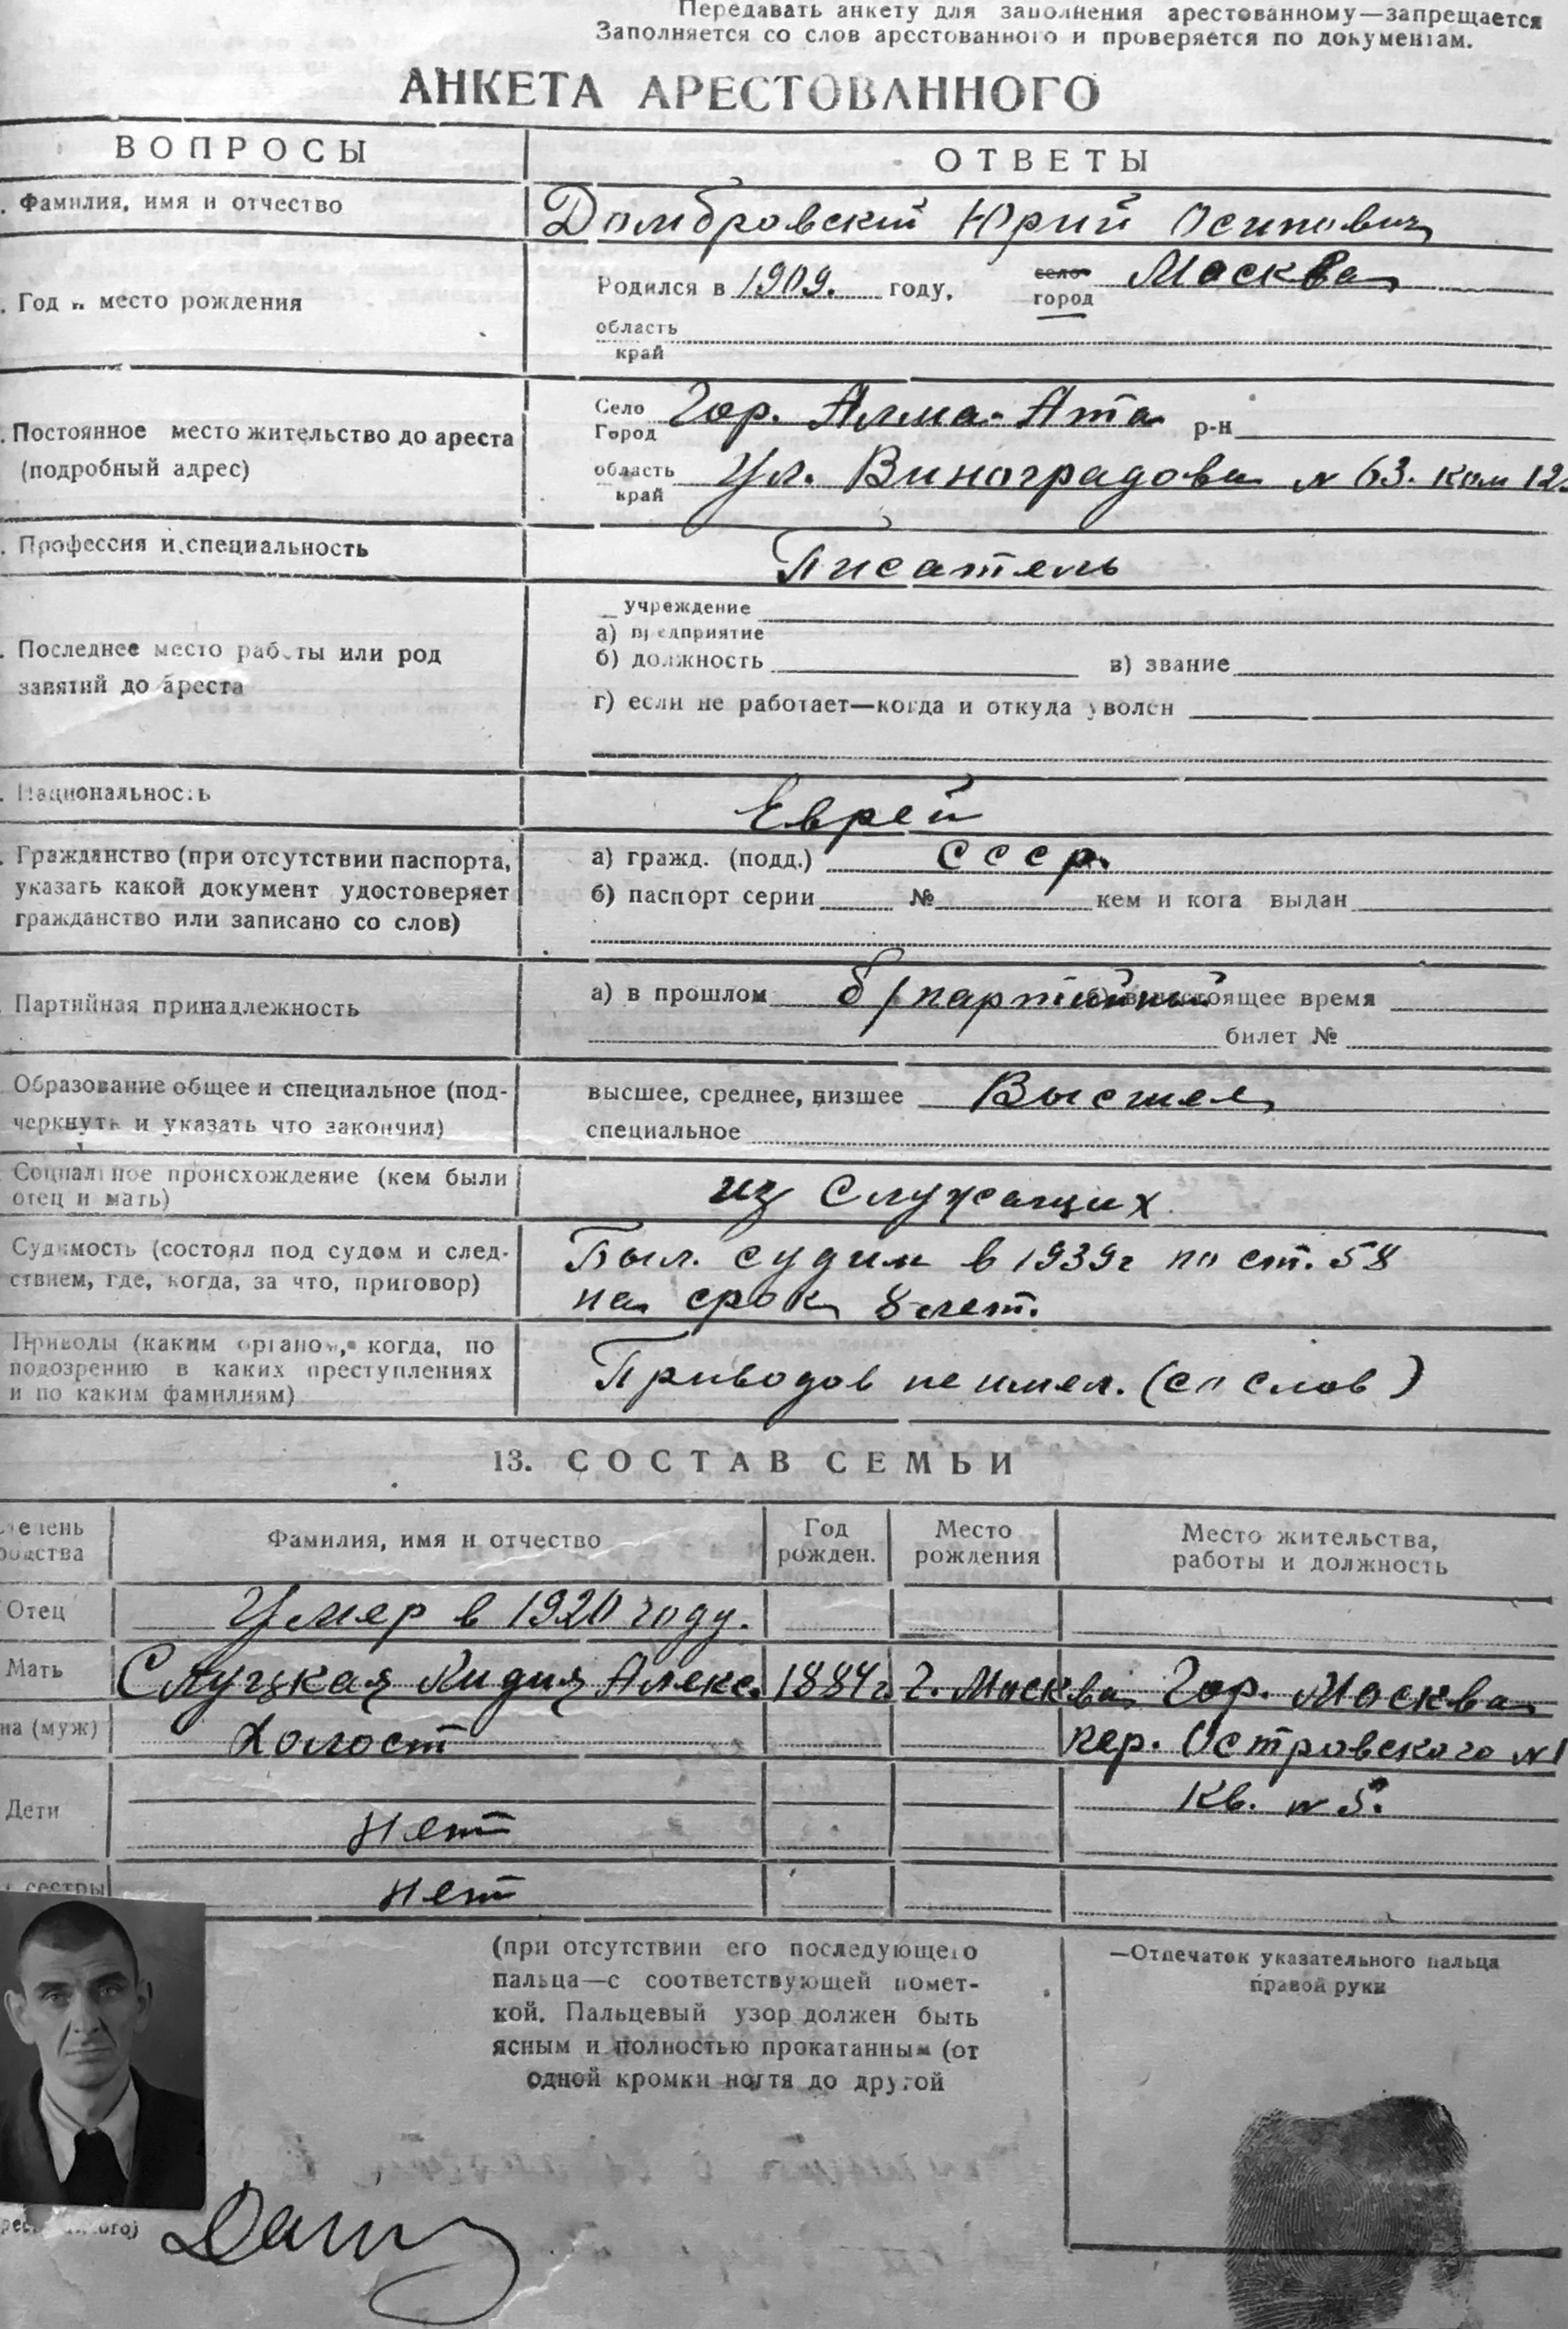 Передавать анкету для заполнения арестованному—запрещается
Заполняется со слов арестованного и проверяется по документам.
АНКЕТА АРЕСТОВАННОГО
ВОПРОСЫ
ОТВЕТЫ
. Фамилия, имя и отчество
Домбровский Юрий Осипович
. Год и место рождения
Родился в 1909. году, село Москва
город
область
край
. Постоянное место жительство до ареста
(подробный адрес)
Село Гор. Алма-Ата р-н
Город
область Ул. Виноградова № 63. ком 12
край
. Профессия и специальность
Писатель
. Последнее место работы или род
занятий до ареста
учреждение
а) предприятие
б) должность в) звание
г) если не работает—когда и откуда уволен
. Национальность
Еврей
. Гражданство (при отсутствии паспорта,
указать какой документ удостоверяет
гражданство или записано со слов)
а) гражд. (подд.) СССР.
б) паспорт серии № кем и кога выдан
Партийная принадлежность
а) в прошлом б/партийный б) в настоящее время
билет №
Образование общее и специальное (под-
черкнуть и указать что закончил)
высшее, среднее, низшее Высшее
специальное
Социальное происхождение (кем были
отец и мать)
из служащих
Судимость (состоял под судом и след-
ствием, где, когда, за что, приговор)
Был. судим в 1939г по ст. 58
на срок 8 лет.
Приводы (каким органом, когда, по
подозрению в каких преступлениях
и по каким фамилиям)
Приводов не имел. (со слов)
13. СОСТАВ СЕМЬИ
степень
родства
Фамилия, имя и отчество
Год
рожден.
Место
рождения
Место жительства,
работы и должность
Отец Умер в 1920 году.
Мать Слуцкая Лидия Алекс. 1884г. г. Москва Гор. Москва
на (муж) Холост пер. Островского №1
Дети Кв. № 5.
Нет
сестры Нет
(при отсутствии его последующего
пальца—с соответствующей помет-
кой. Пальцевый узор должен быть
ясным и полностью прокатанным (от
одной кромки ногтя до другой
—Отпечаток указательного пальца
правой руки